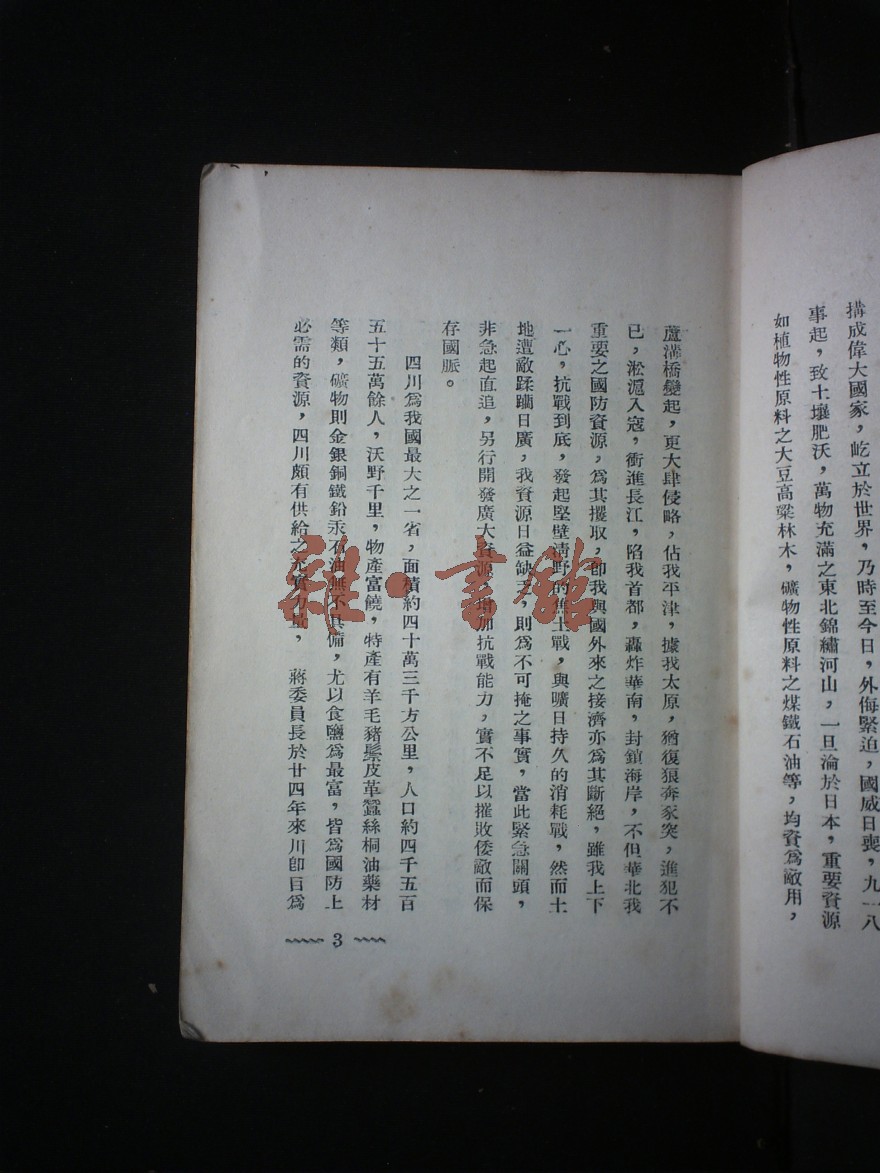 搆成偉大國家，屹立於世界，乃時至今日，外侮緊迫，國威日喪，九一八
事起，致土壤肥沃，萬物充滿之東北錦繡河山，一旦淪於日本，重要資源
如植物性原料之大豆高粱林木，礦物性原料之煤鐵石油等，均資爲敵用，
蘆溝橋變起，更大肆侵略，佔我平津，據我太原，猶復狼奔豕突，進犯不
已，淞滬入寇，衝進長江，陷我首都，轟炸華南，封鎖海岸，不但華北我
重要之國防資源，爲其攫取，卽我與國外來之接濟亦爲其斷絕，雖我上下
一心，抗戰到底，發起堅壁淸野的焦土戰，與曠日持久的消耗戰，然而土
地遭敵蹂躪日廣，我資源日益缺乏，則爲不可掩之事實，當此緊急關頭，
非急起直追，另行開發廣大資源，增加抗戰能力，實不足以摧敗倭敵而保
存國脈。
四川爲我國最大之一省，面積約四十萬三千方公里，人口約四千五百
五十五萬餘人，沃野千里，物產富饒，特產有羊毛豬鬃皮革蠶絲桐油藥材
等類，礦物則金銀銅鐵鉛汞石油無不具備，尤以食鹽爲最富，皆爲國防上
必需的資源，四川頗有供給之充實力量，蔣委員長於廿四年來川卽目爲
3
雜·書館